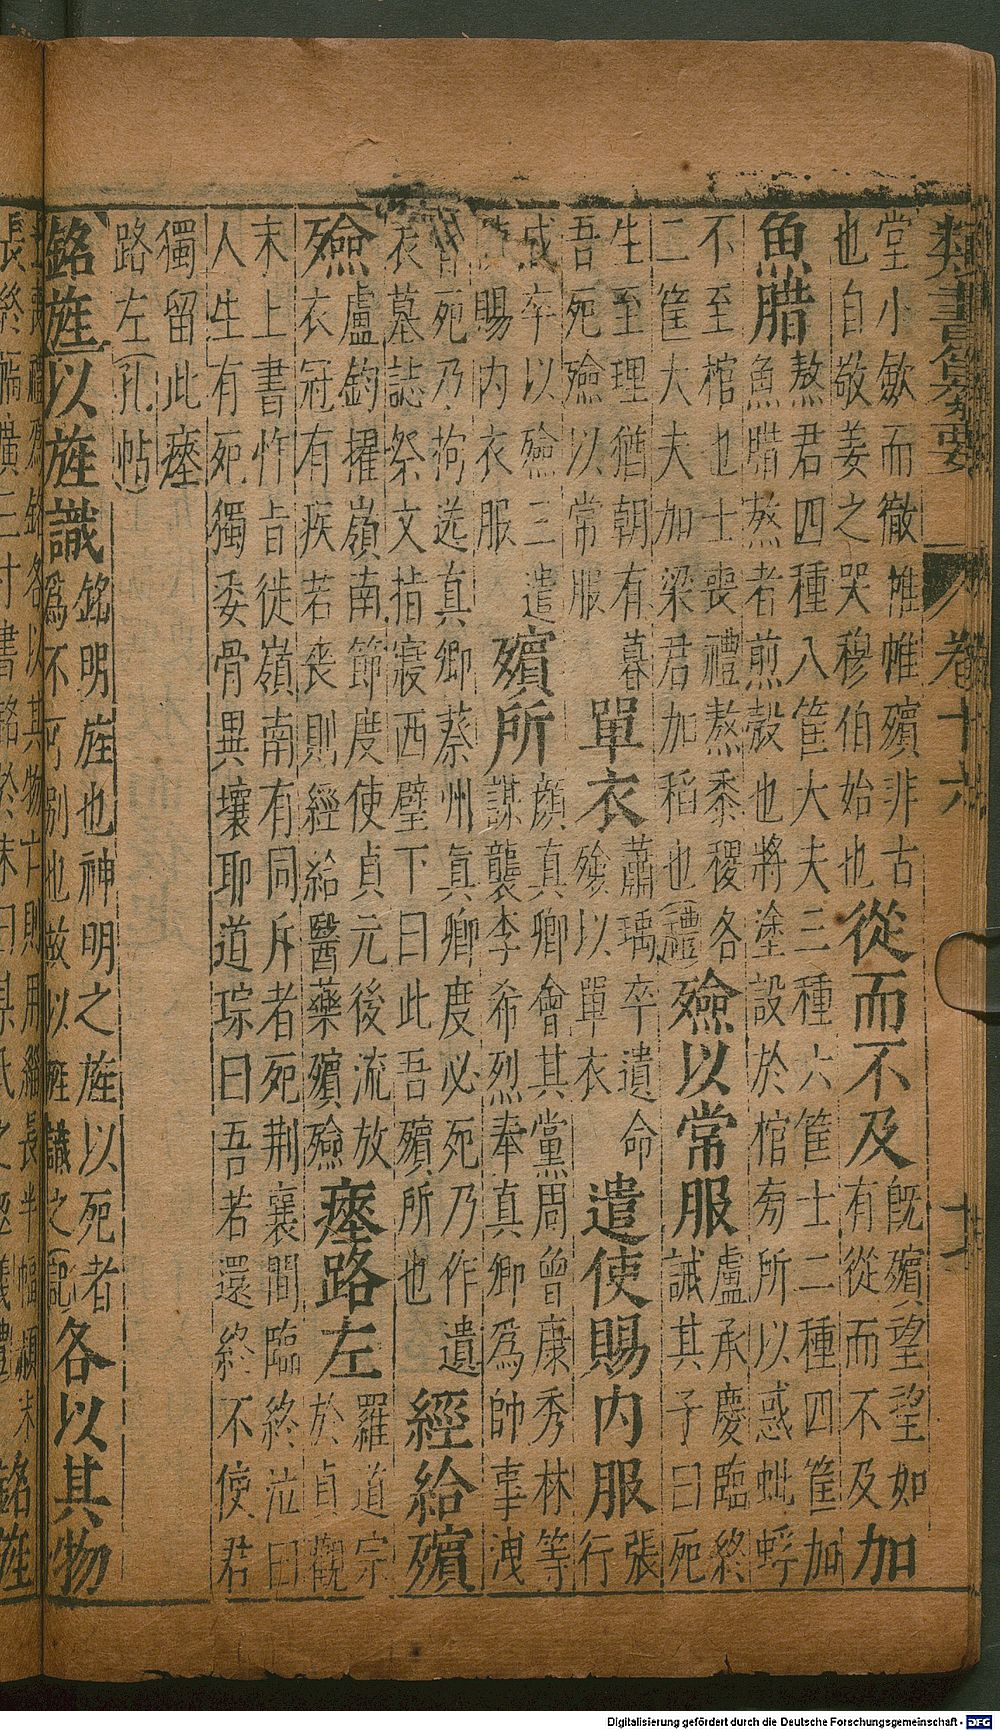 類書纂要 卷十六
堂小斂而徹帷帷殯非古
也自敬姜之哭穆伯始也
從而不及
既殯望望如
有從而不及
加
魚腊
熬君四種八筐大夫三種六筐士二種四筐加
魚腊熬者煎榖也將塗設於棺旁所以惑蚍蜉
不至棺也士喪禮熬黍稷各
二筐大夫加梁君加稻也(禮)
殮以常服
盧承慶臨終
誡其子曰死
生至理猶朝有暮
吾死殮以常服
單衣
蕭瑀卒遺命
殮以單衣
遣使賜内服
張
行
成卒以殮三遣
賜内衣服
殯所
顔真卿會其黨周曾康秀林等
謀襲李希烈奉真卿爲帥事洩
曾死乃拘送真卿蔡州真卿度必死乃作遺
表墓誌祭文指寢西壁下曰此吾殯所也
經給殯
殮
盧鈞擢嶺南節度使貞元後流放
衣冠有疾若喪則經給醫藥殯殮
瘞路左
羅道宗
於貞觀
末上書忤旨徙嶺南有同斥者死荆襄間臨終泣曰
人生有死獨委骨異壤耶道琮曰吾若還終不使君
獨留此瘞
路左(孔帖)
銘旌以旌識
銘明旌也神明之旌以死者
爲不可别也故以旌識之(記)
各以其物
喪�爲銘各以其物亡則用緇長半幅赬末
長終幅廣三寸書銘於末曰某氏之柩儀禮
銘旌
Digitalisierung gefördert durch die Deutsche Forschungsgemeinschaft - DFG